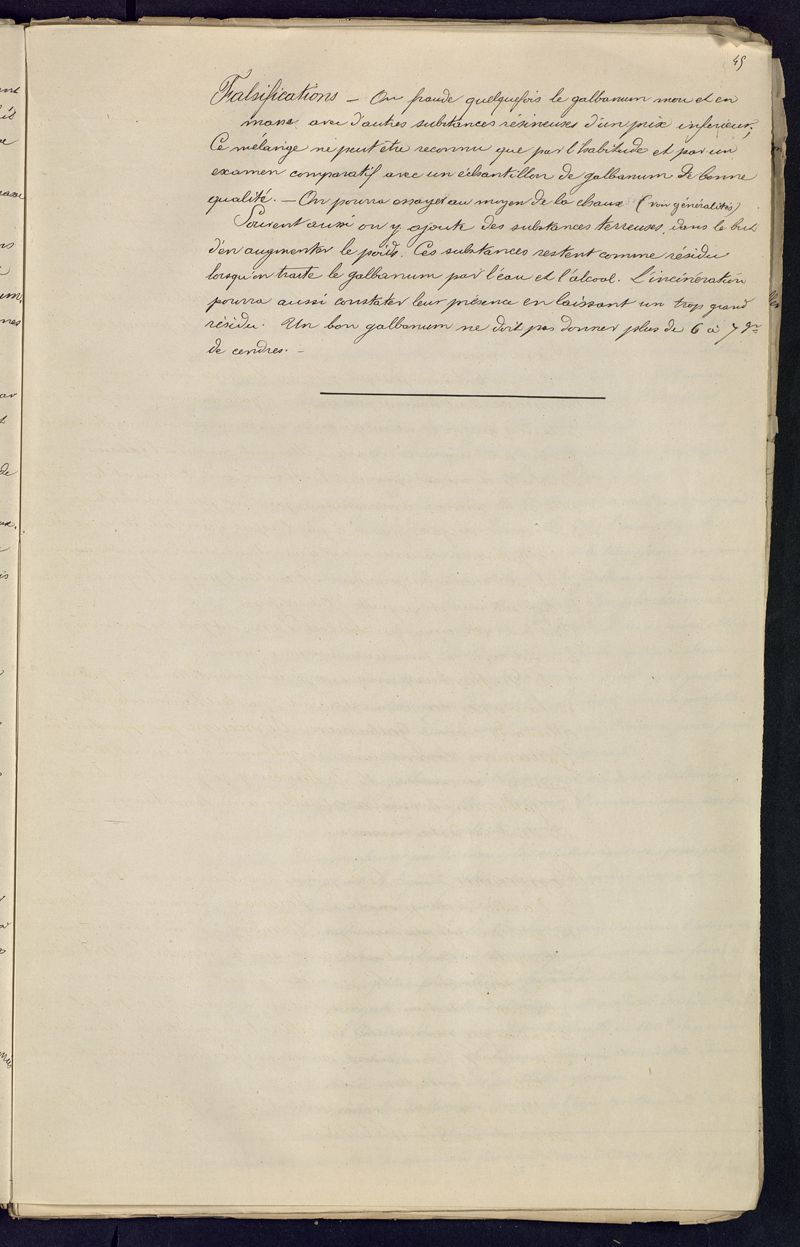 45
Falsifications — On fraude quelquefois le galbanum mou et en
masse avec d'autres substances résineuses d'un prix inférieur;
Ce mélange ne peut être reconnu que par l'habitude et par un
examen comparatif avec un échantillon de galbanum de bonne
qualité. — On pourra essayer au moyen de la chaux (voir généralités)
Souvent aussi on y ajoute des substances terreuses, dans le but
d'en augmenter le poids. Ces substances restent comme résidu
lorsqu'on traite le galbanum par l'eau et l'alcool. L'incinération
pourra aussi constater leur présence en laissant un trop grand
résidu. Un bon galbanum ne doit pas donner plus de 6 à 7 gr
de cendres. —